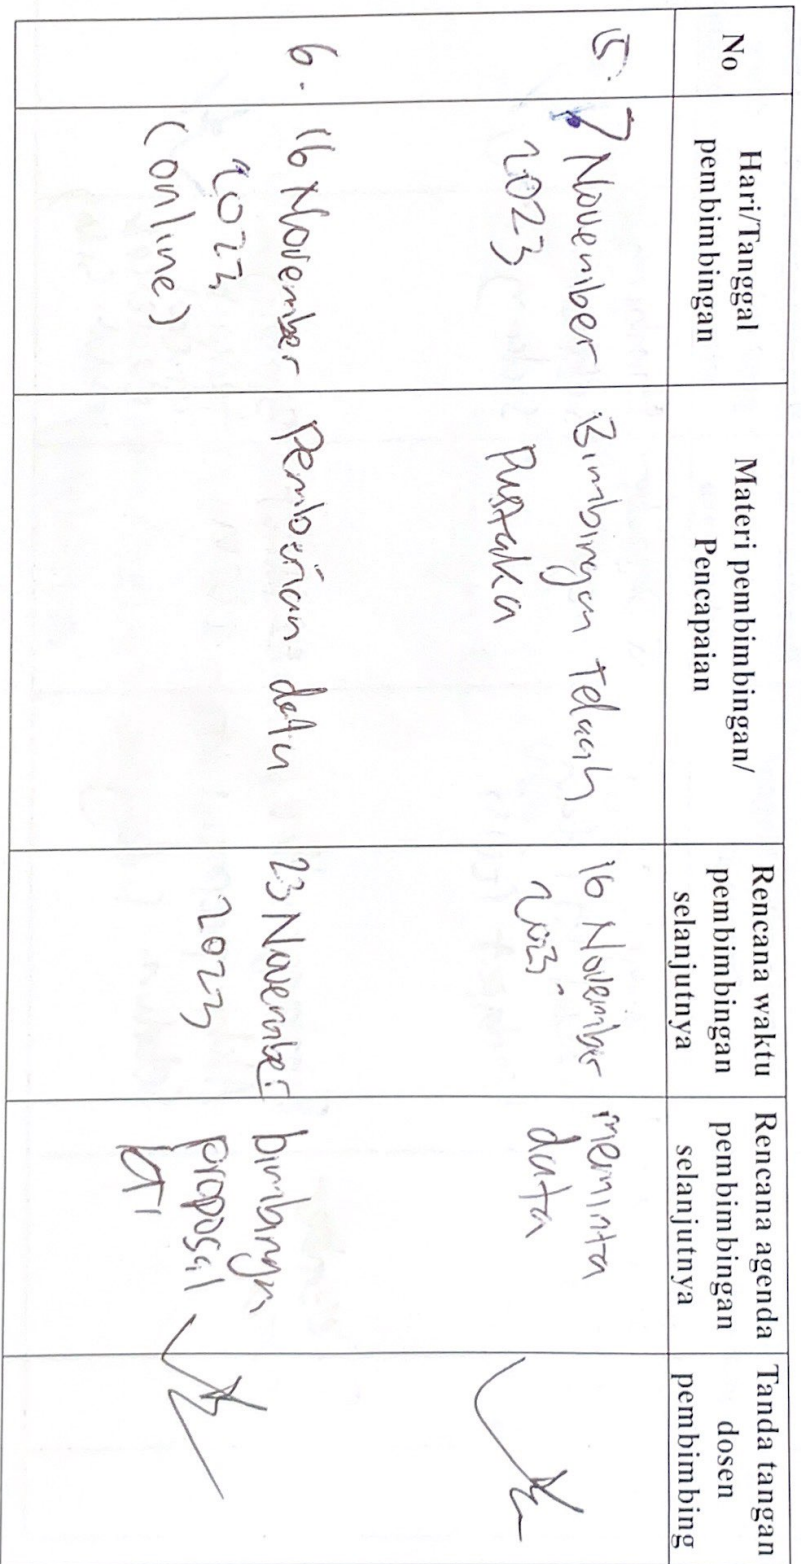 No
Hari/Tanggal
pembimbingan
Materi pembimbingan/
Pencapaian
Rencana waktu
pembimbingan
selanjutnya
Rencana agenda
pembimbingan
selanjutnya
Tanda tangan
dosen
pembimbing
5.
7 November
2023
Bimbingan Telaah
Pustaka
16 November
2023
meminta
data
6.
16 November
2023
(online)
Pemberian data
23 November
2023
bimbingan
proposal